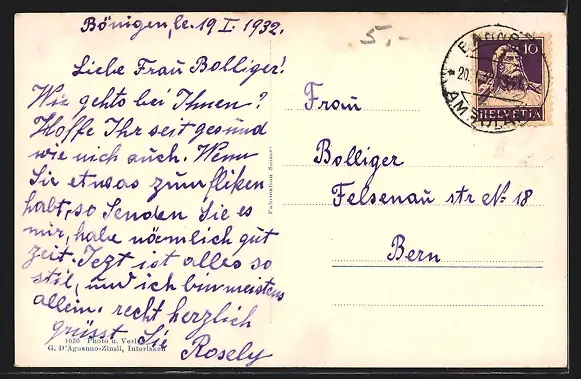 Bönigen, le. 19 I. 1932.
Liebe Frau Bolliger!
Wie gehts bei Ihnen?
Hoffe Ihr seit gesund
wie mich auch. Wenn
Sie etwas zum fliken
habt, so Senden Sie es
mir, habe nämlich gut
zeit. Jezt ist alles so
stil, und ich bin meistens
allein. recht herzlich
grüsst Sie
Rosely
1026 Photo u. Verl
G. D'Aguanno-Zinsli, Interlaken
Fabrication Suisse
5,-
10
HELVETIA
20.
Frau
Bolliger
Felsenau str No 18
Bern